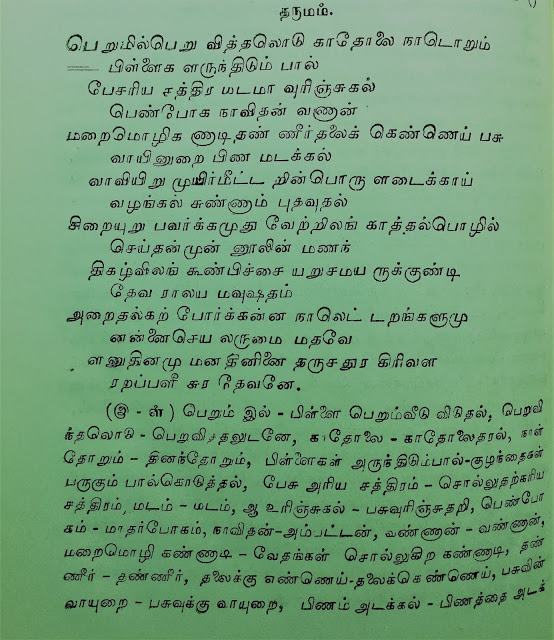 தருமம்.
பெறுமில்பெறு வித்தலொடு காதோலை நாடொறும்
பிள்ளைக ளருந்திடும் பால்
பேசரிய சத்திர மடமா வுரிஞ்சுகல்
பெண்போக நாவிதன் வணான்
மறைமொழிக ணாடிதண் ணீர்தலைக் கெண்ணெய் பசு
வாயினுறை பிண மடக்கல்
வாவியிறு முயிர்மீட்ட றின்பொரு ளடைக்காய்
வழங்கல் சுண்ணாம் புதவுதல்
சிறையுறு பவர்க்கமுது வேற்றிலங் காத்தல்பொழில்
செய்தன்முன் னூலின் மணந்
திகழ்விலங் கூண்பிச்சை யறுசமய ருக்குண்டி
தேவ ராலய மவுஷதம்
அறைதல்கற் போர்க்கன்ன நாலெட் டறங்களுமு
னன்னைசெய லருமை மதவே
ளனுதினமு மனதினினை தருசதுர கிரிவள
ரறப்பளீ சுர தேவனே.
(இ - ள்) பெறும் இல் - பிள்ளை பெறும்வீடு விடுதல், பெறுவி
த்தலொடு - பெறுவித்தலுடனே, காதோலை - காதோலைதரல், நாள்
தோறும் - தினந்தோறும், பிள்ளைகள் அருந்திடும்பால்-குழந்தைகள்
பருகும் பால்கொடுத்தல், பேசு அரிய சத்திரம் - சொல்லுதற்கரிய
சத்திரம், மடம் - மடம், ஆ உரிஞ்சுகல் - பசுவுரிஞ்சுதறி, பெண்போ
கம் - மாதர்போகம், நாவிதன்-அம்பட்டன், வண்ணான் - வண்ணான்,
மறைமொழி கண்ணாடி - வேதங்கள் சொல்லுகிற கண்ணாடி, தண்
ணீர் - தண்ணீர், தலைக்கு எண்ணெய்-தலைக்கெண்ணெய், பசுவின்
வாயுறை - பசுவுக்கு வாயுறை, பிணம் அடக்கல் - பிணத்தை அடக்